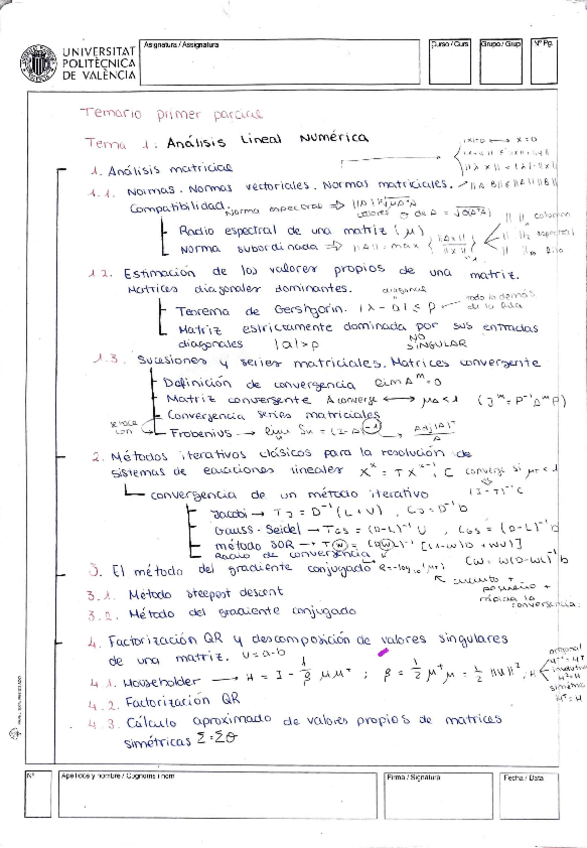 UNIVERSITAT
POLITÈCNICA
DE VALÈNCIA
Asignatura / Assignatura
Curso / Curs
Grupo / Grup
Nº Pg.
Temario primer parcial
Tema 1: Análisis Lineal Numérica
1. Análisis matricial
1.1. Normas. Normas vectoriales. Normas matriciales.
Compatibilidad.
Norma espectral ⇒
Radio espectral de una matriz (μ)
Norma subordinada ⇒ ||A|| = max { ||Ax|| / ||x||
1.2. Estimación de los valores propios de una matriz.
Matrices diagonales dominantes.
diagonal
Teorema de Gershgorin. |λ - a| ≤ ρ
todo lo demás
de la fila
Matriz estrictamente dominada por sus entradas
diagonales |a| > ρ
NO
SINGULAR
1.3. Sucesiones y series matriciales. Matrices convergente
Definición de convergencia lim A^m = 0
Matriz convergente A converge ↔ μA < 1 (J^m = P^-1 A^m P)
Convergencia series matriciales
Frobenius →
2. Métodos iterativos clásicos para la resolución de
sistemas de ecuaciones lineales
converge si μT < 1
convergencia de un método iterativo
(I-T)^-1 C
Jacobi → TJ = D^-1 (L+U), CJ = D^-1 b
Gauss-Seidel → TGS = (D-L)^-1 U, CGS = (D-L)^-1 b
método SOR → Tw = (D-wL)^-1 [(1-w)D + wU)]
Radio de convergencia
Cw = w(D-wL)^-1 b
3. El método del gradiente conjugado
cuanto +
pequeño +
rápida la
convergencia.
3.1. Método steepest descent
3.2. Método del gradiente conjugado
4. Factorización QR y descomposición de valores singulares
de una matriz. u = a-b
4.1. Householder → H = I - 1/β μμ^+ ; β = 1/2 μ^+μ = 1/2 ||u||², H
4.2. Factorización QR
4.3. Cálculo aproximado de valores propios de matrices
simétricas
Nº
Apellidos y nombre / Cognoms i nom
Firma / Signatura
Fecha / Data